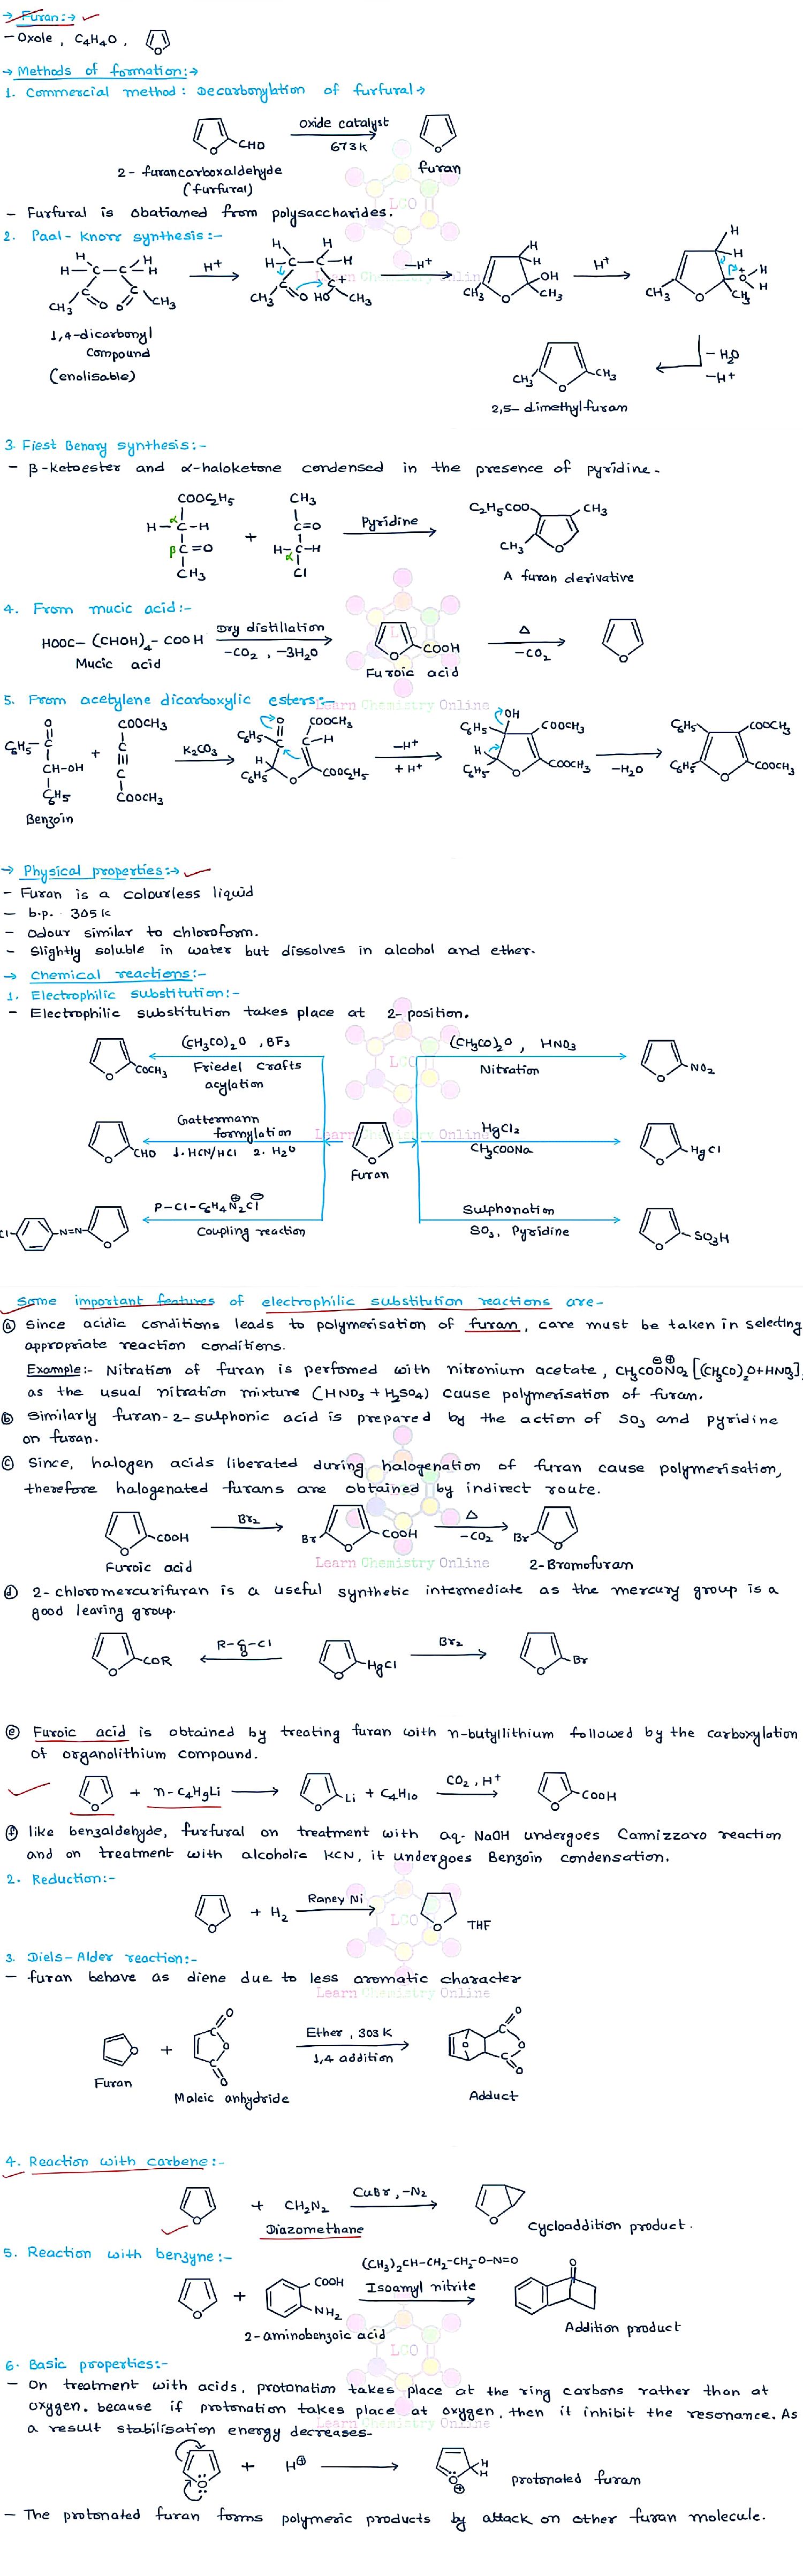 → Furan:→
- Oxole, C4H4O, O
→ Methods of formation:→
1. Commercial method: Decarbonylation of furfural→
O CHO oxide catalyst 673K O
2- furancarboxaldehyde furan
(furfural)
- Furfural is obatianed from polysaccharides.
2. Paal- Knorr synthesis:-
H H H H C C CH3 C O O C CH3 H+ H H H H C C CH3 C O HO C + CH3 -H+ H H OH CH3 O CH3 H+ H H CH3 O + O H H CH3
1,4-dicarbonyl
compound
(enolisable)
- H2O
-H+
CH3 O CH3
2,5- dimethylfuran
3. Fiest Benary synthesis:-
- β-ketoester and α-haloketone condensed in the presence of pyridine.
COOC2H5 CH3
H-C-H α + C=O Pyridine C2H5COO CH3
β C=O H-C-H α CH3 O
CH3 Cl
A furan derivative
4. From mucic acid:-
HOOC- (CHOH)4- COOH Dry distillation -CO2, -3H2O O COOH Δ -CO2 O
Mucic acid Furoic acid
5. From acetylene dicarboxylic esters:-
O C6H5-C CH-OH C6H5 + COOCH3 C ||| C COOCH3 K2CO3 O C6H5 C COOCH3 C H H C6H5 O COOC2H5 -H+ + H+ OH C6H5 COOCH3 H C6H5 O COOCH3 -H2O C6H5 COOCH3 C6H5 O COOCH3
Benzoin
→ Physical properties:→
- Furan is a colourless liquid
- b.p. 305K
- Odour similar to chloroform.
- Slightly soluble in water but dissolves in alcohol and ether.
→ Chemical reactions:-
1. Electrophilic substitution:-
- Electrophilic substitution takes place at 2-position.
O COCH3 (CH3CO)2O, BF3 (CH3CO)2O, HNO3 O NO2
Friedel Crafts Nitration
acylation
Gattermann
formylation HgCl2
O CHO 1. HCN/HCl 2. H2O O CH3COONa O HgCl
Furan
P-Cl-C6H4N2Cl Sulphonation
Cl N=N O Coupling reaction SO3, Pyridine O SO3H
Some important features of electrophilic substitution reactions are-
ⓐ Since acidic conditions leads to polymerisation of furan, care must be taken in selecting
appropriate reaction conditions.
Example:- Nitration of furan is perfomed with nitronium acetate, CH3COONO2 [(CH3CO)2O+HNO3],
as the usual nitration mixture (HNO3 + H2SO4) cause polymerisation of furan.
ⓑ Similarly furan-2-sulphonic acid is prepared by the action of SO3 and pyridine
on furan.
ⓒ Since, halogen acids liberated during halogenation of furan cause polymerisation,
therefore halogenated furans are obtained by indirect route.
O COOH Br2 Br O COOH Δ -CO2 Br O
Furoic acid 2-Bromofuran
ⓓ 2-chloromercurifuran is a useful synthetic intermediate as the mercury group is a
good leaving group.
O COR R-C-Cl O O HgCl Br2 O Br
ⓔ Furoic acid is obtained by treating furan with n-butyllithium followed by the carboxylation
of organolithium compound.
O + n-C4H9Li O Li + C4H10 CO2, H+ O COOH
ⓕ like benzaldehyde, furfural on treatment with aq. NaOH undergoes Cannizzaro reaction
and on treatment with alcoholic KCN, it undergoes Benzoin condensation.
2. Reduction:-
O + H2 Raney Ni O THF
3. Diels-Alder reaction:-
- furan behave as diene due to less aromatic character
O + O C O C O Ether, 303K 1,4 addition O C O O C O
Furan Maleic anhydride Adduct
4. Reaction with carbene:-
O + CH2N2 CuBr, -N2 O
Diazomethane Cycloaddition product.
5. Reaction with benzyne:-
(CH3)2CH-CH2-CH2-O-N=O
O + COOH NH2 Isoamyl nitrite O
2-aminobenzoic acid Addition product
6. Basic properties:-
- On treatment with acids, protonation takes place at the ring carbons rather than at
oxygen. because if protonation takes place at oxygen, then it inhibit the resonance. As
a result stabilisation energy decreases.
O + H⊕ O H H protonated furan
- The protonated furan forms polymeric products by attack on other furan molecule.
LCO
Learn Chemistry Online